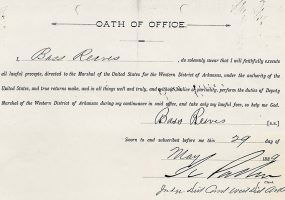 OATH OF OFFICE.
I, Bass Reeves, do solemnly swear that I will faithfully execute
all lawful precepts, directed to the Marshal of the United States for the Western District of Arkansas, under the authority of the
United States, and true returns make, and in all things well and truly, and without malice or partiality, perform the duties of Deputy
Marshal of the Western District of Arkansas during my continuance in said office, and take only my lawful fees, so help me God.
Bass Reeves
Sworn to and subscribed before me this 29 day of
May 1889